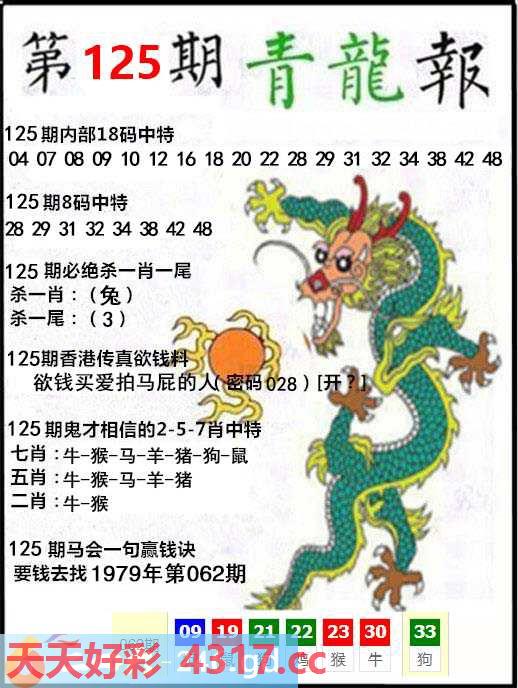 第125期 青龍報
125期内部18码中特
04 07 08 09 10 12 16 18 20 22 28 29 31 32 34 38 42 48
125期8码中特
28 29 31 32 34 38 42 48
125期必绝杀一肖一尾
杀一肖：（兔）
杀一尾：（3）
125期香港传真欲钱料
欲钱买爱拍马屁的人（密码028）[开？]
125期鬼才相信的2-5-7肖中特
七肖：牛-猴-马-羊-猪-狗-鼠
五肖：牛-猴-马-羊-猪
二肖：牛-猴
125期马会一句赢钱诀
要钱去找1979年第062期
062期 09 19 21 22 23 30 33
鼠 狗 鸡 猴 牛 狗
天天好彩 4317.cc